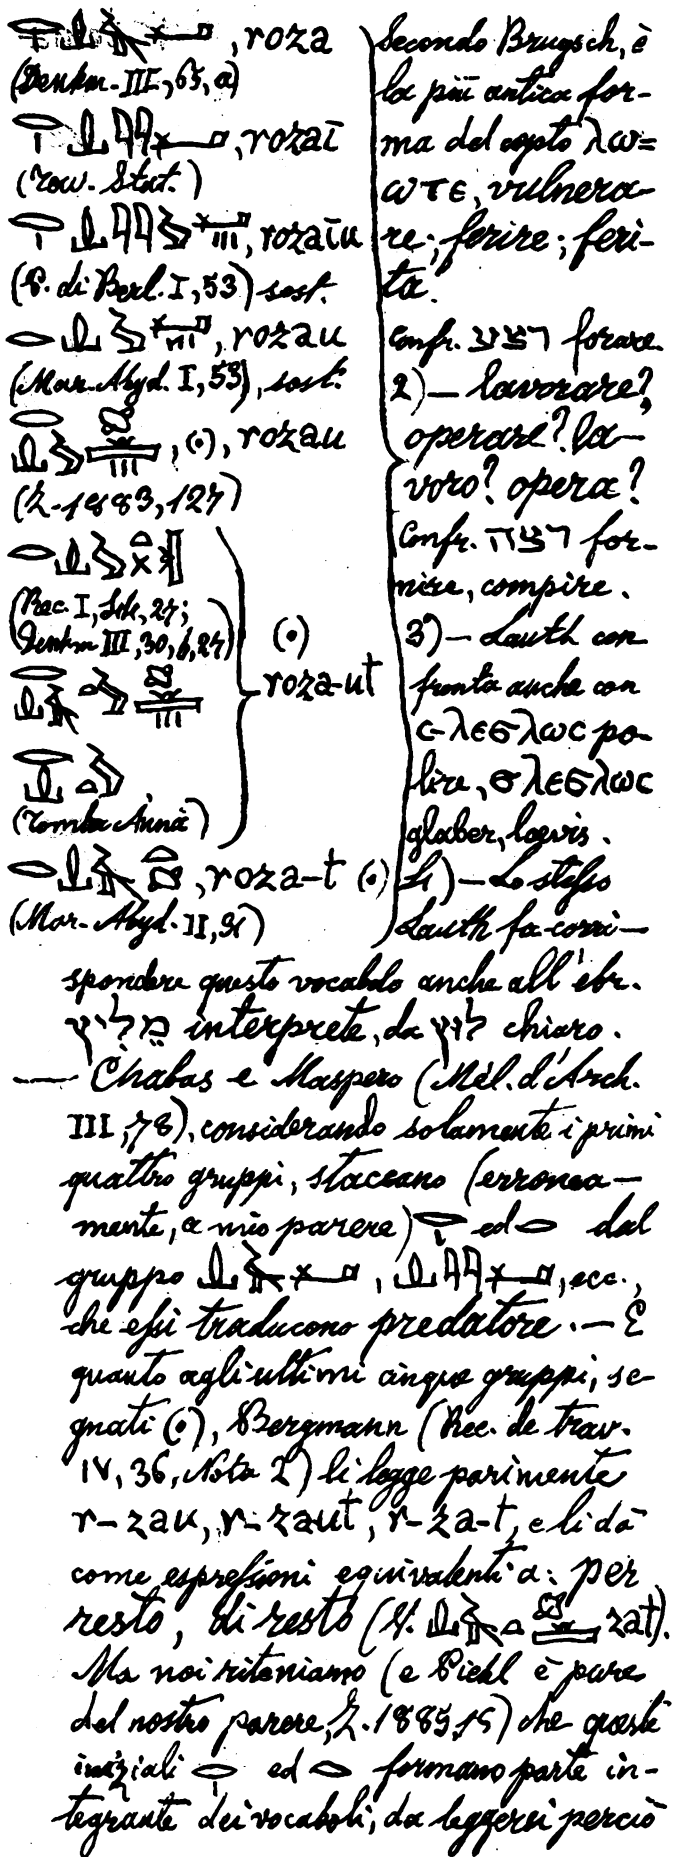 , roza
(Denkm. III, 65, a)
, rozaī
(Row. Stat.)
, rozaīu
(P. di Berl. I, 53) sost.
, rozau
(Mar. Abyd. I, 53), sost.
, (•), rozau
(Z. 1883, 127)
(Rec. I, 27;
Denkm III, 30, b, 27)
(•)
roza-ut
(Tomba Anna)
, roza-t (•)
(Mar. Abyd. II, 31)
Secondo Brugsch, è
la più antica for-
ma del copto λω=
ωτε, vulnera-
re; ferire; feri-
ta.
Confr. רצע forare.
2) — lavorare?
operare? la-
voro? opera?
Confr. רצה for-
nire, compire.
3°) — Lauth con
fronta anche con
c-λεϭλωc po-
lire, ϭλεϭλωc
glaber, laevis.
4) — Lo stesso
Lauth fa corri-
spondere questo vocabolo anche all'ebr.
מליץ interprete, da לוץ chiaro.
— Chabas e Maspero (Mél. d'Arch.
III, 78), considerando solamente i primi
quattro gruppi, staccano (erronea-
mente, a mio parere) ed dal
gruppo , , ecc.,
che essi traducono predatore. — E
quanto agli ultimi cinque gruppi, se-
gnati (•), Bergmann (Rec. de trav.
IV, 36, Nota 2) li legge parimente
r-zau, r-zaut, r-za-t, e li dà
come espressioni equivalenti a: per
resto, di resto (V. zat).
Ma noi riteniamo (e Piehl è pure
del nostro parere, Z. 1885, 15) che queste
iniziali ed formano parte in-
tegrante dei vocaboli, da leggersi perciò